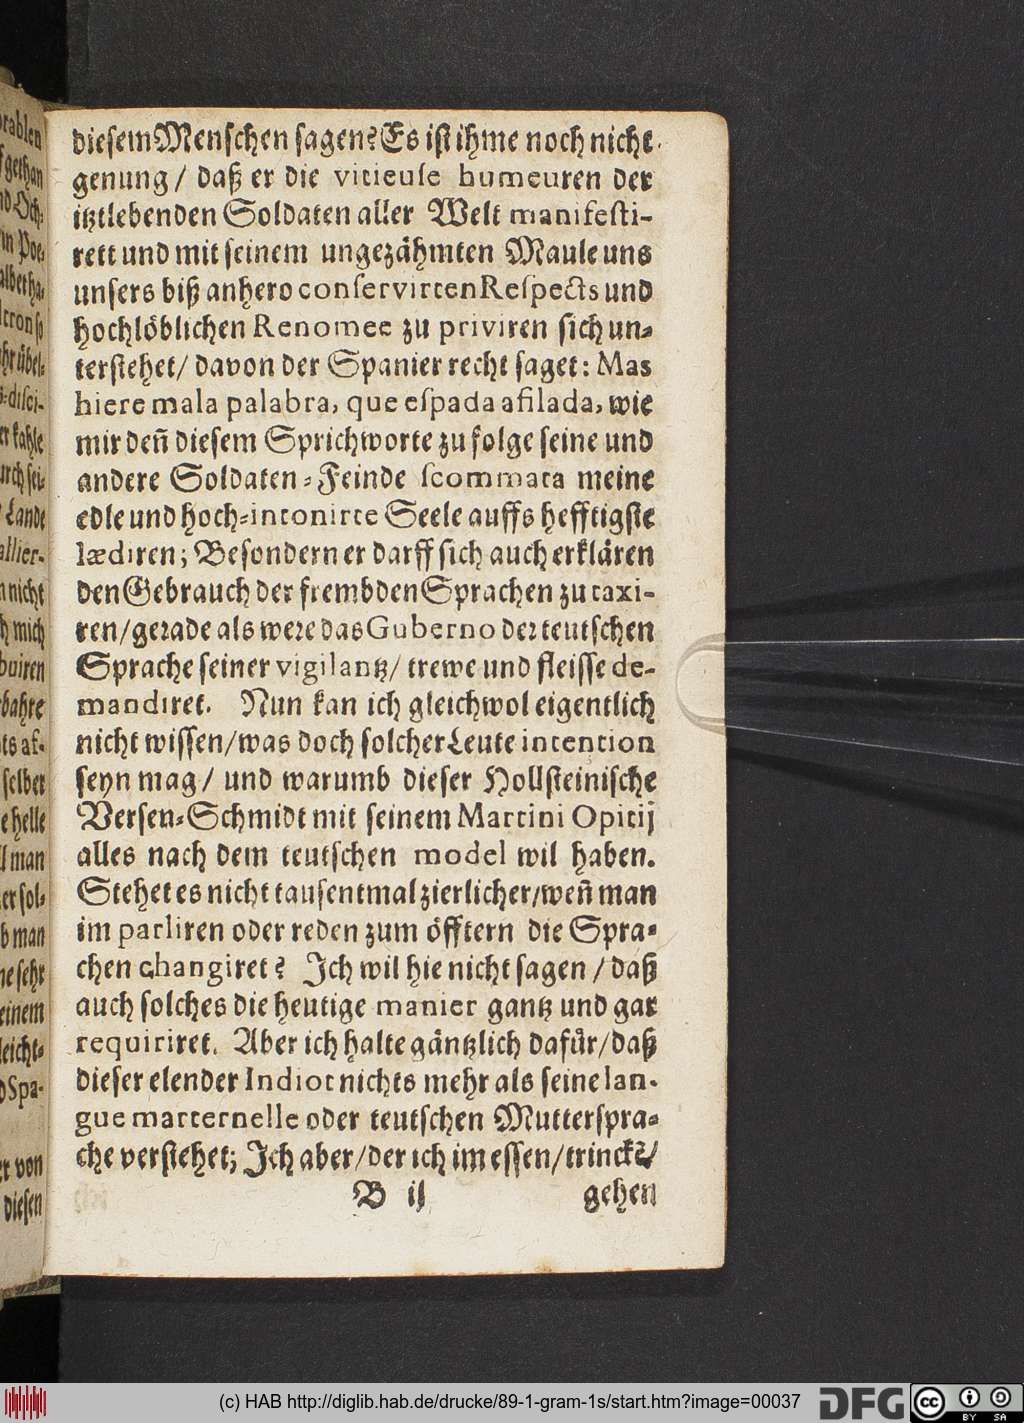 diesem Menschen sagen? Es ist ihme noch nicht
genung / daß er die vitieuſe humeuren der
itztlebenden Soldaten aller Welt manifeſti-
rett und mit seinem ungezähmten Maule uns
unsers biß anhero conſervirten Reſpects und
hochlöblichen Renomee zu priviren sich un-
terstehet / davon der Spanier recht saget: Mas
hiere mala palabra, que eſpada afilada, wie
mir deñ diesem Sprichworte zu folge seine und
andere Soldaten-Feinde ſcommata meine
edle und hoch-intonirte Seele auffs hefftigste
lædiren; Besondern er darff sich auch erklären
den Gebrauch der frembden Sprachen zu taxi-
ren / gerade als were das Guberno der teutschen
Sprache seiner vigilantz / trewe und fleisse de-
mandiret. Nun kan ich gleichwol eigentlich
nicht wissen / was doch solcher Leute intention
seyn mag / und warumb dieser Hollsteinische
Versen-Schmidt mit seinem Martini Opitij
alles nach dem teutschen model wil haben.
Stehet es nicht tausentmal zierlicher / weñ man
im parliren oder reden zum öfftern die Spra-
chen changiret? Ich wil hie nicht sagen / daß
auch solches die heutige manier gantz und gar
requiriret. Aber ich halte gäntzlich dafür / daß
dieser elender Indiot nichts mehr als seine lan-
gue marternelle oder teutschen Mutterspra-
che verstehet; Ich aber / der ich im essen / trinckẽ /
B ij gehen
(c) HAB http://diglib.hab.de/drucke/89-1-gram-1s/start.htm?image=00037
DFG
cc BY SA